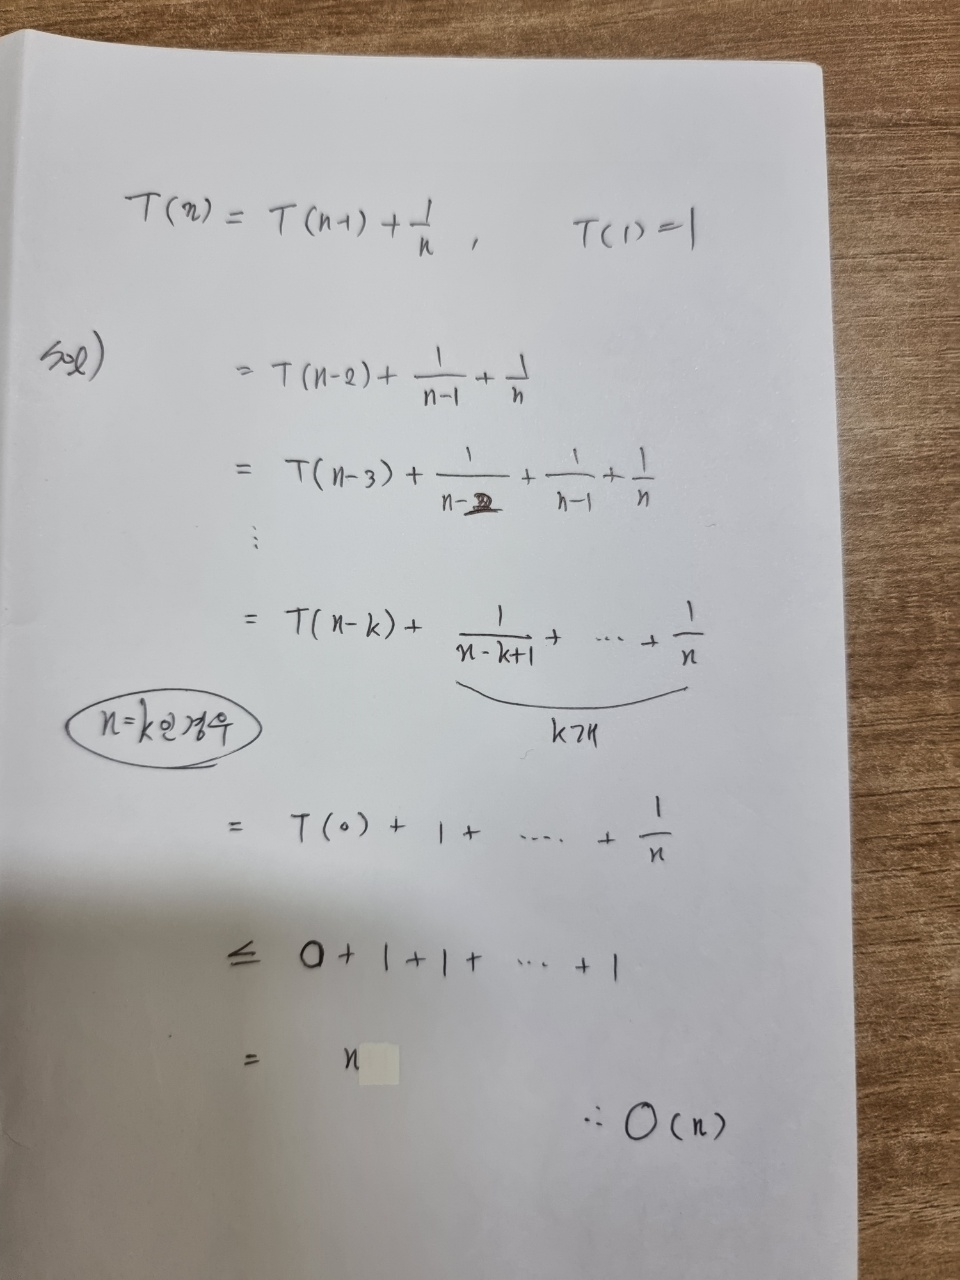 T(n) = T(n-1) + 1/n , T(1) = 1
sol) = T(n-2) + 1/(n-1) + 1/n
= T(n-3) + 1/(n-2) + 1/(n-1) + 1/n
⋮
= T(n-k) + 1/(n-k+1) + ... + 1/n
k개
n=k인 경우
= T(0) + 1 + .... + 1/n
≤ 0 + 1 + 1 + ... + 1
= n
∴ O(n)